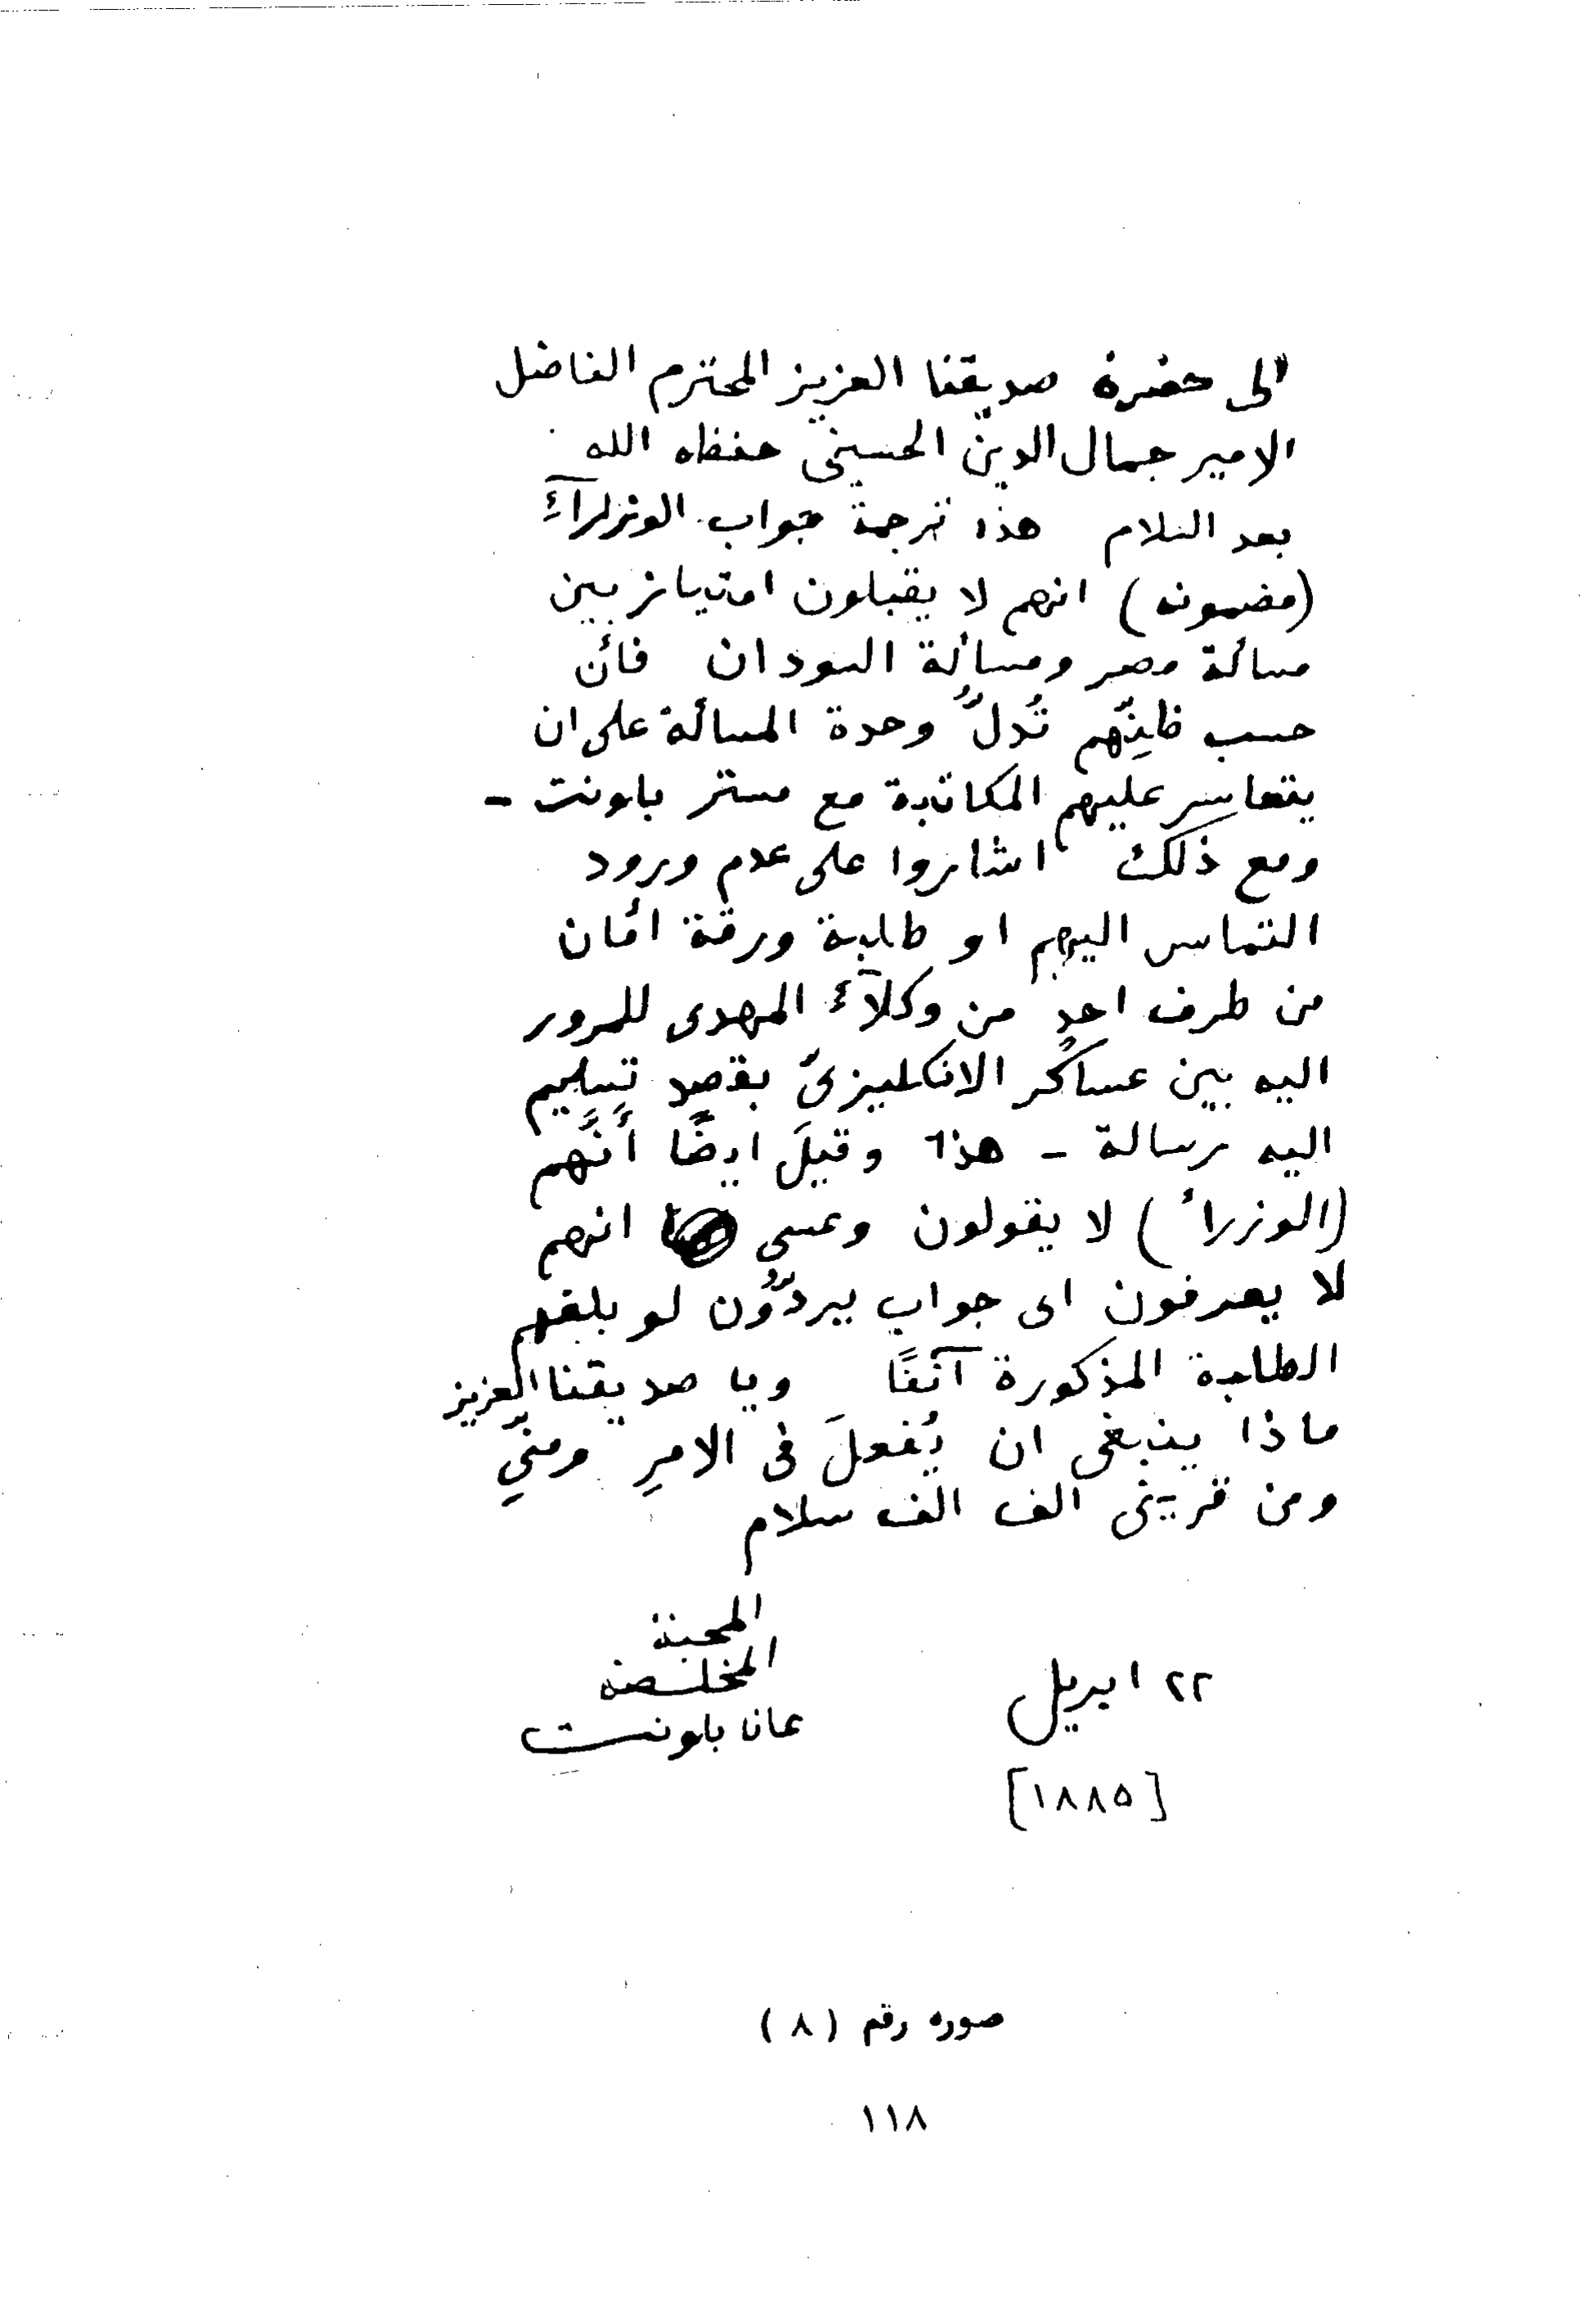 الى حضرة صديقنا العزيز المحترم الفاضل
الامير جمال الدين الحسينى حفظه الله
بعد السلام هذا ترجمة جواب الوزرآءِ
(مضمونه) انهم لا يقبلون امتياز بين
مسألة مصر ومسألة السودان فأن
حسب ظنِّهم تُدلُّ وحدة المسألة على ان
يتعاسر عليهم المكاتبة مع مستر بلونت -
ومع ذلك اشاروا على عدم ورود
التماس اليهم او طلبة ورقة امان
من طرف احدٍ من وكلآء المهدى للمرور
اليه بين عساكر الانكليزىّ بقصدِ تسليم
اليه رسالة - هذا وقيلَ ايضًا أَنَّهم
(الوزراء) لا يقولون وعسى انهم
لا يعرفون اى جواب يردّون لو بلغهم
الطلبة المذكورة آنفًا ويا صديقنا العزيز
ماذا ينبغى ان يُفعلَ فى الامرِ ومنّي
ومن قرينى الف الف سلام
المحبة
المخلصة
عانا بلونت
٢٢ ابريل
[١٨٨٥]
صوره رقم (٨)
١١٨